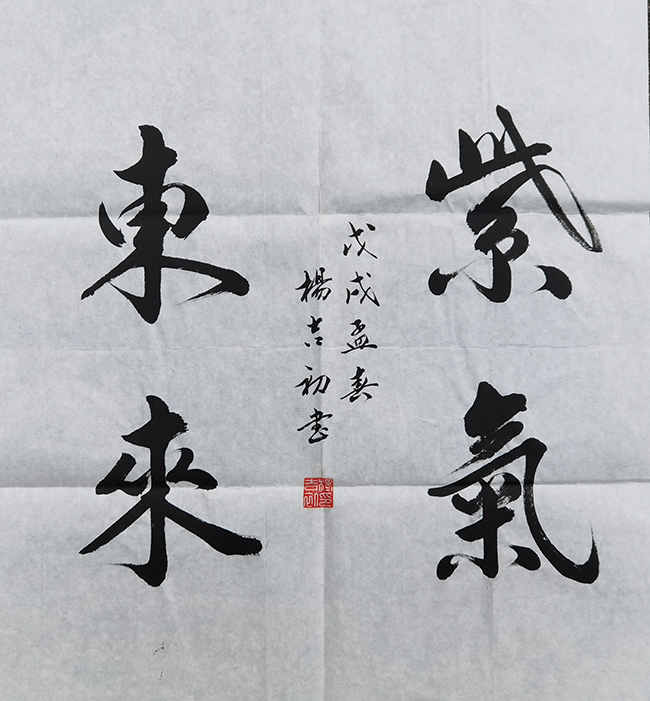 紫氣
東來
戊戌孟春
楊吉初書